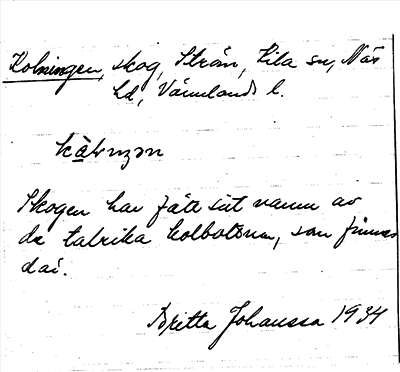 Kolningen, skog, Strån, Kila sn, Näs
hd, Värmlands l.
Skogen har fått sitt namn av
de talrika kolbottnar, som finnas
där.
Britta Johansson 1934